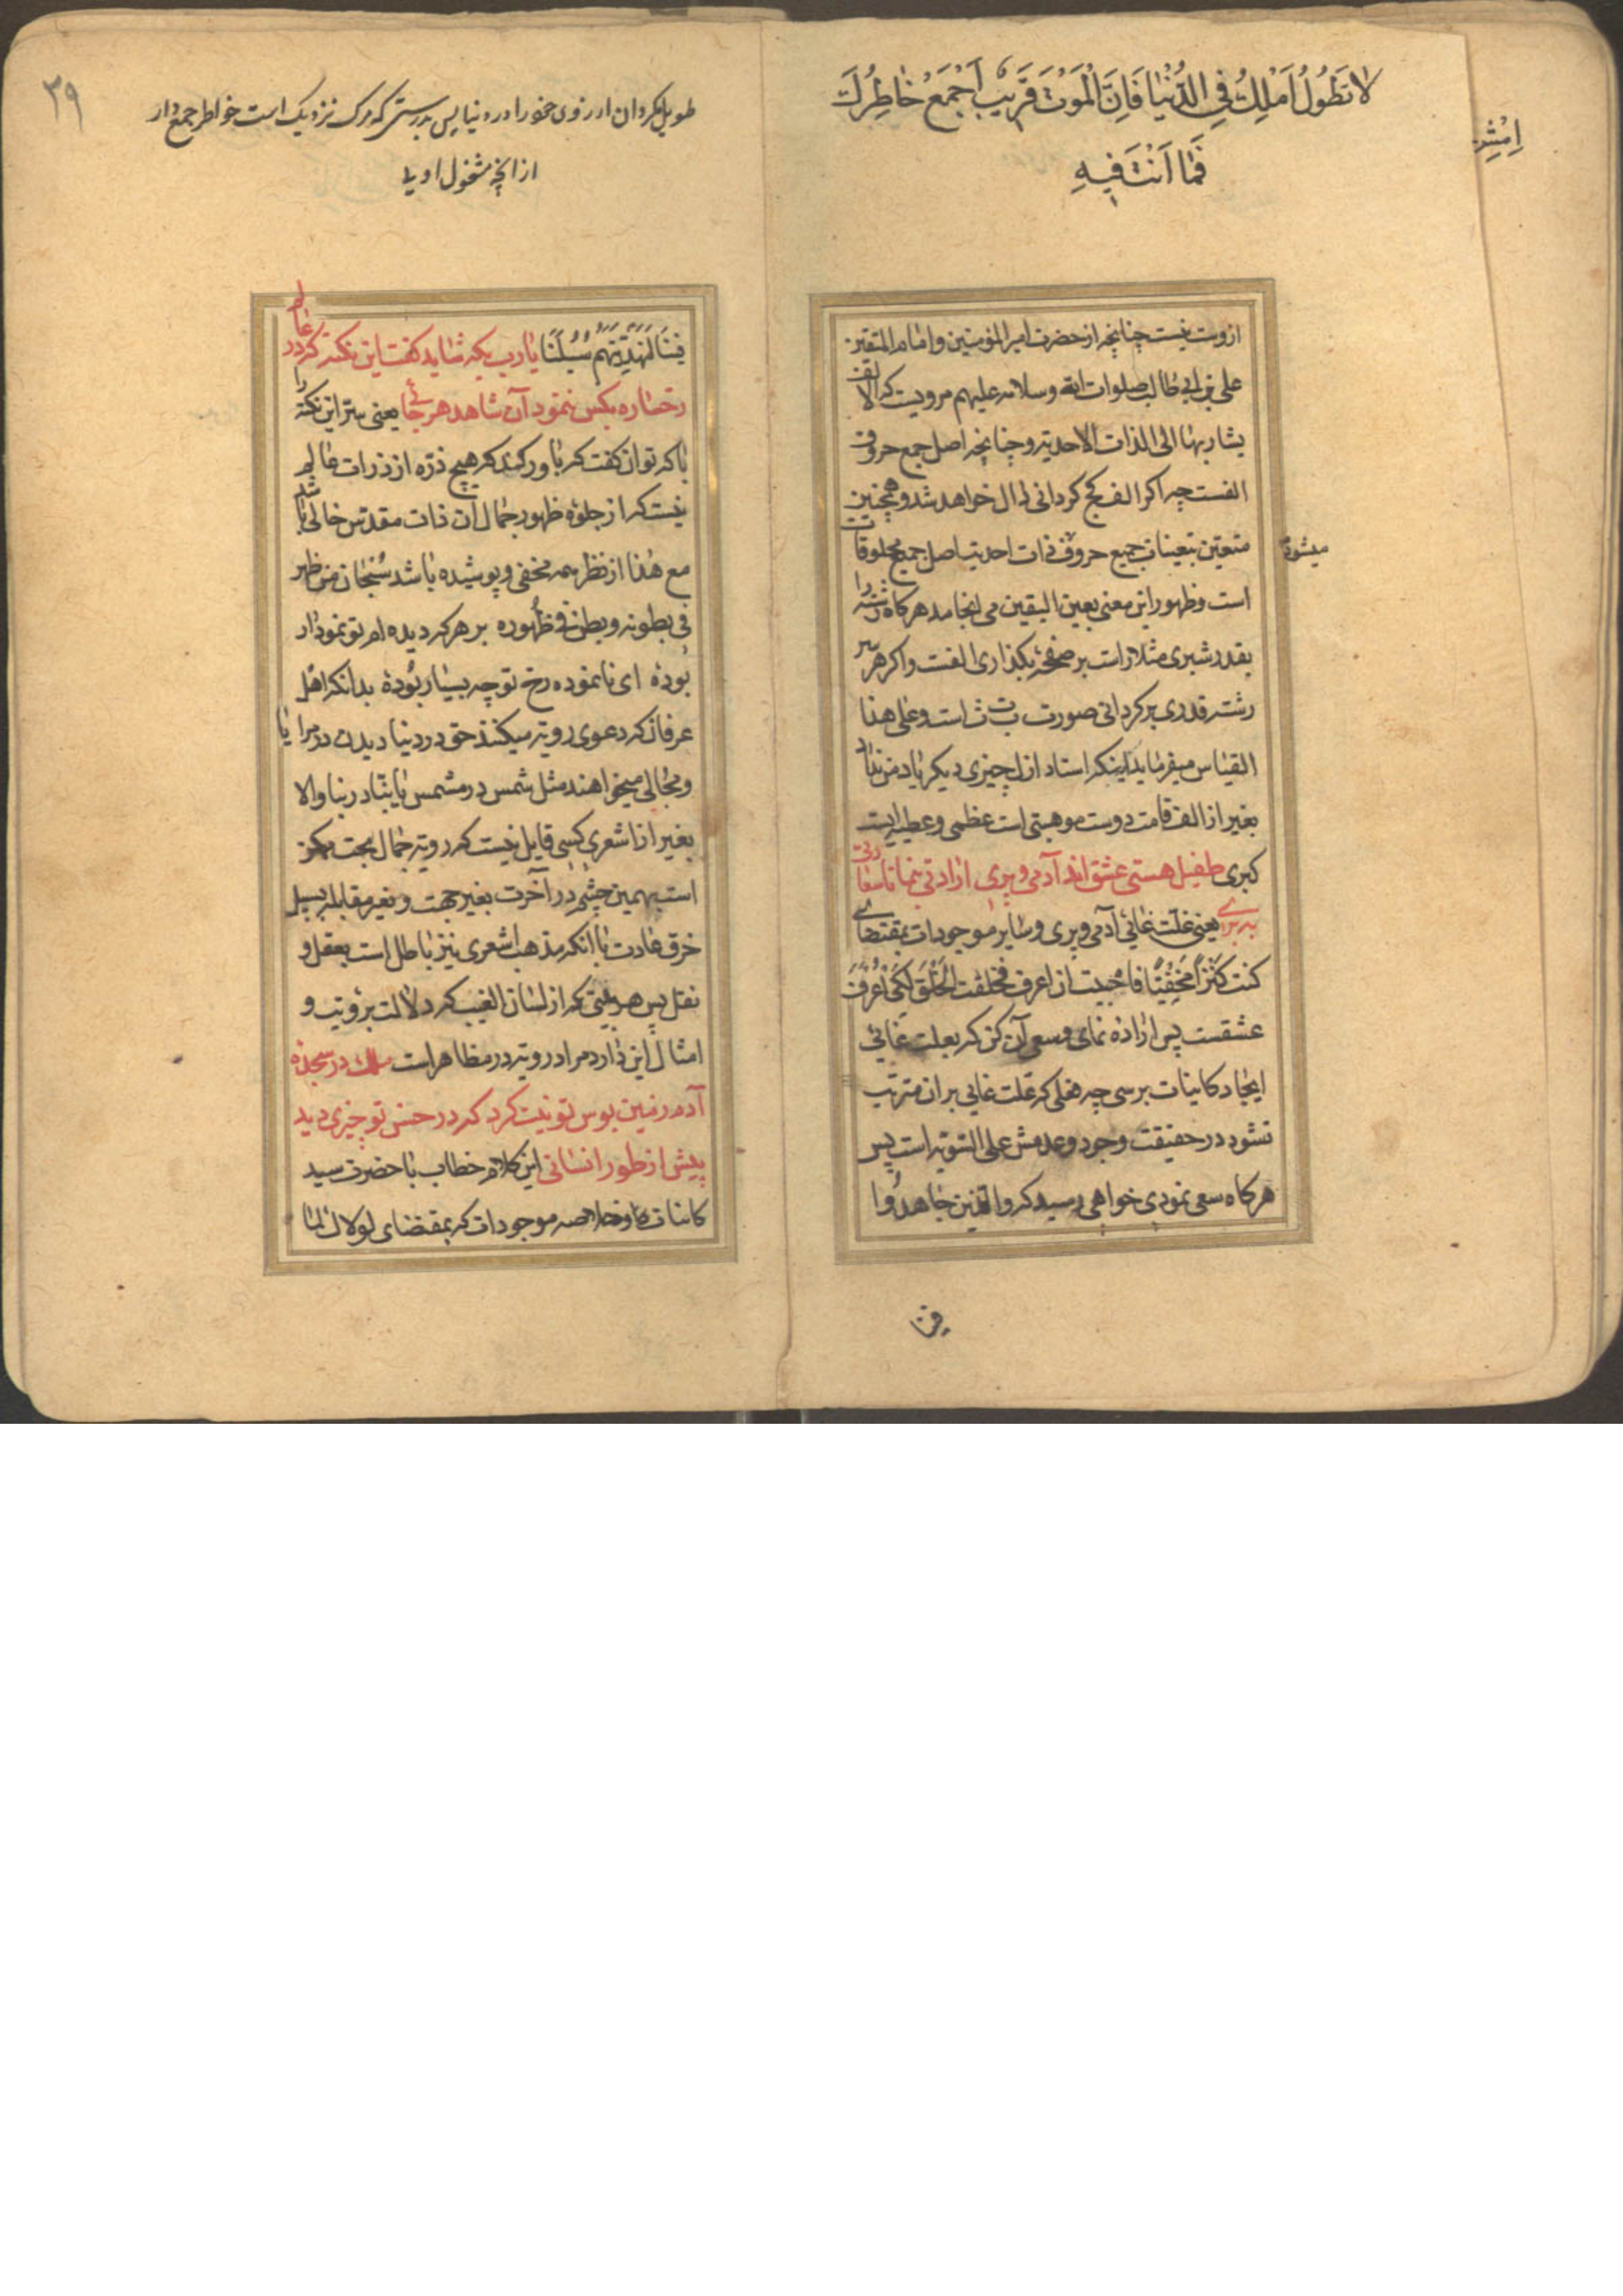 لا تَطُولُ اَمَلِكُ فِي الدُّنْيَا فَاِنَّ الْمَوْتَ قَرِيْبٌ اَجْمَعُ خَاطِرُكَ
فَمَا اَنْتَ فِيهِ
ازوست نیست چنانچه از حضرت امیرالمؤمنین و امام المتقین
علی بن ابی طالب صلوات الله وسلامه علیهم مرویست که الالف
یشار بها الی الذات الاحدیة و چنانچه اصل جمع حروف
الفست چه اکر الف کج کردانی دال خواهد شد و همچنین
متعین بتعینات جمیع حروف ذات احدیت اصل جمیع مخلوقات
میشود
است و ظهور این معنی بعین الیقین می انجامد هرکاه رشته را
بقدر شبری مثلا راست بر صفحه بکذاری الفست و اکر هر سر
رشته قدری برکردانی صورت ب ت ث است و علی هذا
القیاس میفرماید اینکه استاد ازل چیزی دیکر یاد من نداد
بغیر از الف قامت دوست موهبتی است عظمی و عطیه ایست
کبری طفیل هستی عشق اند آدمی و پری ارادتی بنما تا سعادتی
ببری یعنی علت غائی آدمی و پری و سایر موجودات بمقتضای
کنت کَنْزاً مَخْفِیًّا فاحببت ان اعرف فخلقت الخَلْقَ لِکَیْ اُعْرَفَ
عشقست پس اراده نمای و سعی آن کن که بعلت غائی
ایجاد کاینات برسی چه فعلی که علت غایی بران مترتب
نشود در حقیقت وجود و عدمش علی السویه است پس
هرکاه سعی نمودی خواهی رسید که والذین جاهدُوا
فینا
۳۹
طویل مکردان ارزوی خود را در دنیا پس بدرستی که مرک نزدیک است خواطر جمع دار
از انچه مشغول اویی
فینَا لَنَهْدِیَنَّهُمْ سُبُلَنَا یا رب بکه شاید کفت این نکته که در عالم
رخساره بکس ننمود آن شاهد هرجائی یعنی سر این نکته را
با که توان کفت که باور کند که هیچ ذره از ذرات عالم
نیست که از جلوه ظهور جمال ان ذات مقدس خالی باشد
مع هذا از نظر همه مخفی و پوشیده باشد سُبحان من ظهر
فی بطونه و بطن فی ظهوره بر هرکه دیده ام تو نمودار
بوده ای نانموده رخ تو چه بسیار بوده بدانکه اهل
عرفان که دعوی رویة میکنند حق در دنیا دیدن در مرایا
و مجالی میخواهند مثل شمس در مشمس یا یتبادر بنا و الا
بغیر از اشعری کسی قایل نیست که رویة جمال بحت ممکن
است بهمین چشم در آخرت بغیر جهت و بغیر مقابله بسبیل
خرق عادت با انکه مذهب اشعری نیز باطل است بعقل و
نقل پس هر بیتی که از لسان الغیب که دلالت برؤیت و
امثال این دارد مراد رویة در مظاهر است ملک در سجده
آدم زمین بوس تو نیت کرد که در حسن تو چیزی دید
پیش از طور انسانی این کلام خطاب با حضرت سید
کاینات و خلاصه موجودات که بمقتضای لولاك لما